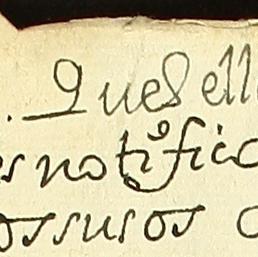 . Quesell
esnotifica
ossusos